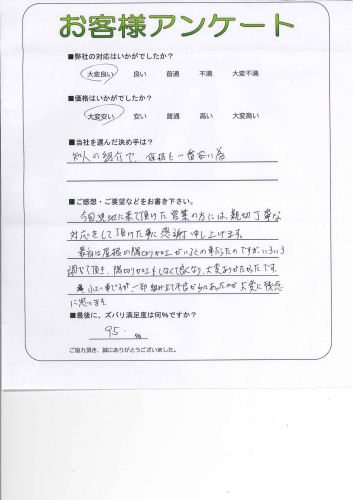 お客様アンケート
■弊社の対応はいかがでしたか?
大変良い 良い 普通 不満 大変不満
■価格はいかがでしたか?
大変安い 安い 普通 高い 大変高い
■当社を選んだ決め手は?
知人の紹介で、価格も一番安い為
■ご感想・ご要望などをお書き下さい。
今回現地に来て頂けた営業の方には、親切丁寧な
対応をして頂けた事に感謝申し上げます。
最初は屋根の隅切り加工がいるとの事だったのですが、いろいろ
調べて頂き、隅切り加工もしなくて良くなり、大変ありがたかったです。
小さい事ですが一部組み立て不良があったのが大変に残念
に思います。
■最後に、ズバリ満足度は何%ですか?
95 %
ご協力頂き、誠にありがとうございました。